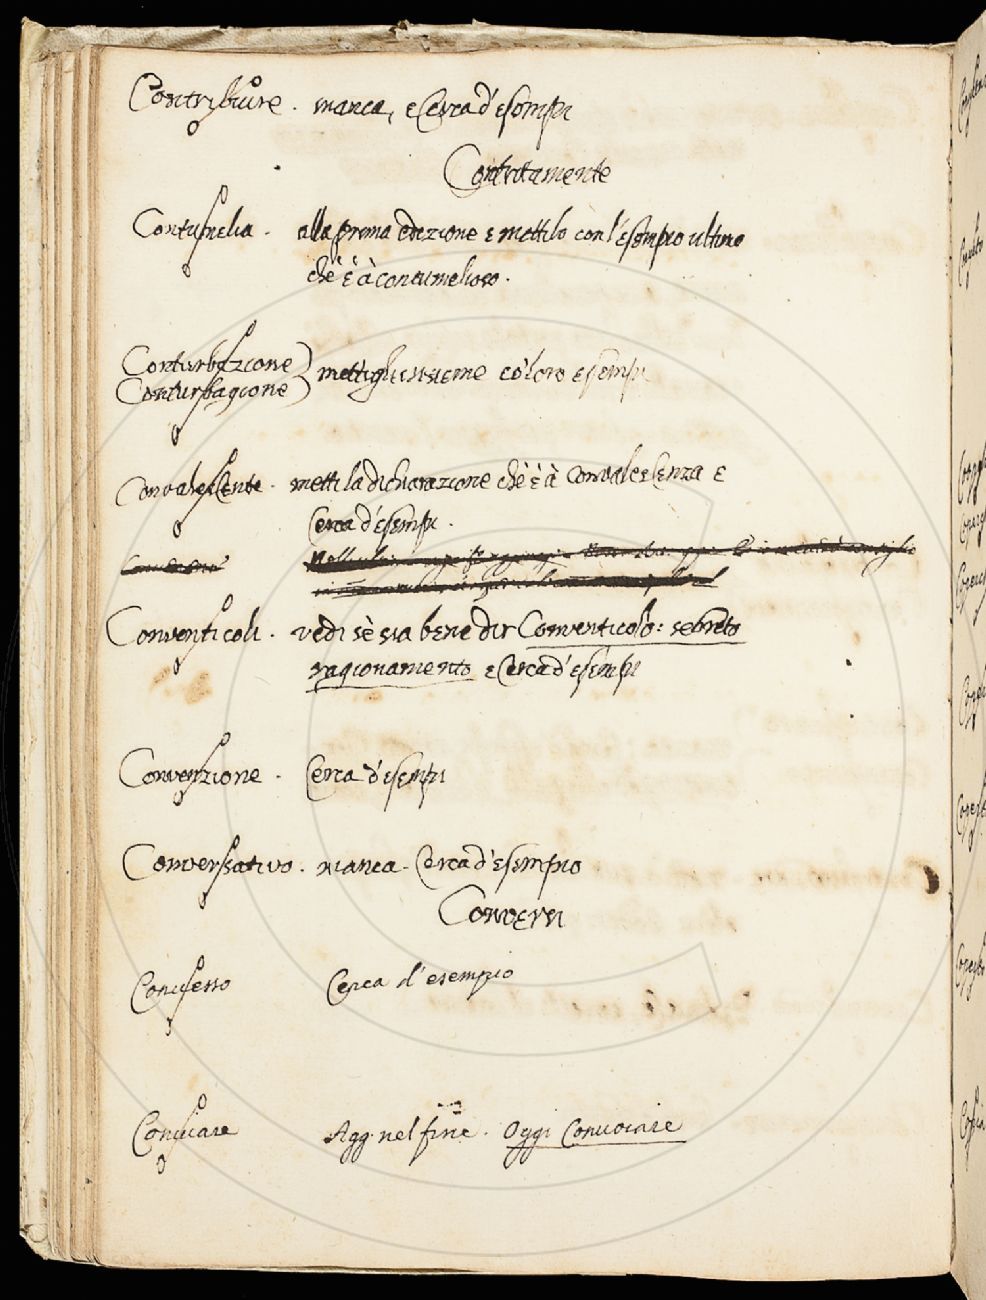 Contribuire. manca, e Cerca d'esempi
Contritamente
Contumelia. alla prima edizione e mettilo con l'esempio ultimo
ch'è à contumelioso.
Conturbazione
Conturbagione } mettigli insieme co' loro esempi
Convalescente. metti la dichiarazione ch'è à Convalescenza e
Cerca d'esempi.
Conventicoli. vedi sè sia bene dir Conventicolo: segreto
ragionamento e Cerca d'esempi
Convenzione. Cerca d'esempi
Conversativo. manca. Cerca d'esempio
Converti
Confesso Cerca d'esempio
Agg. nel fine. Oggi Convoiare